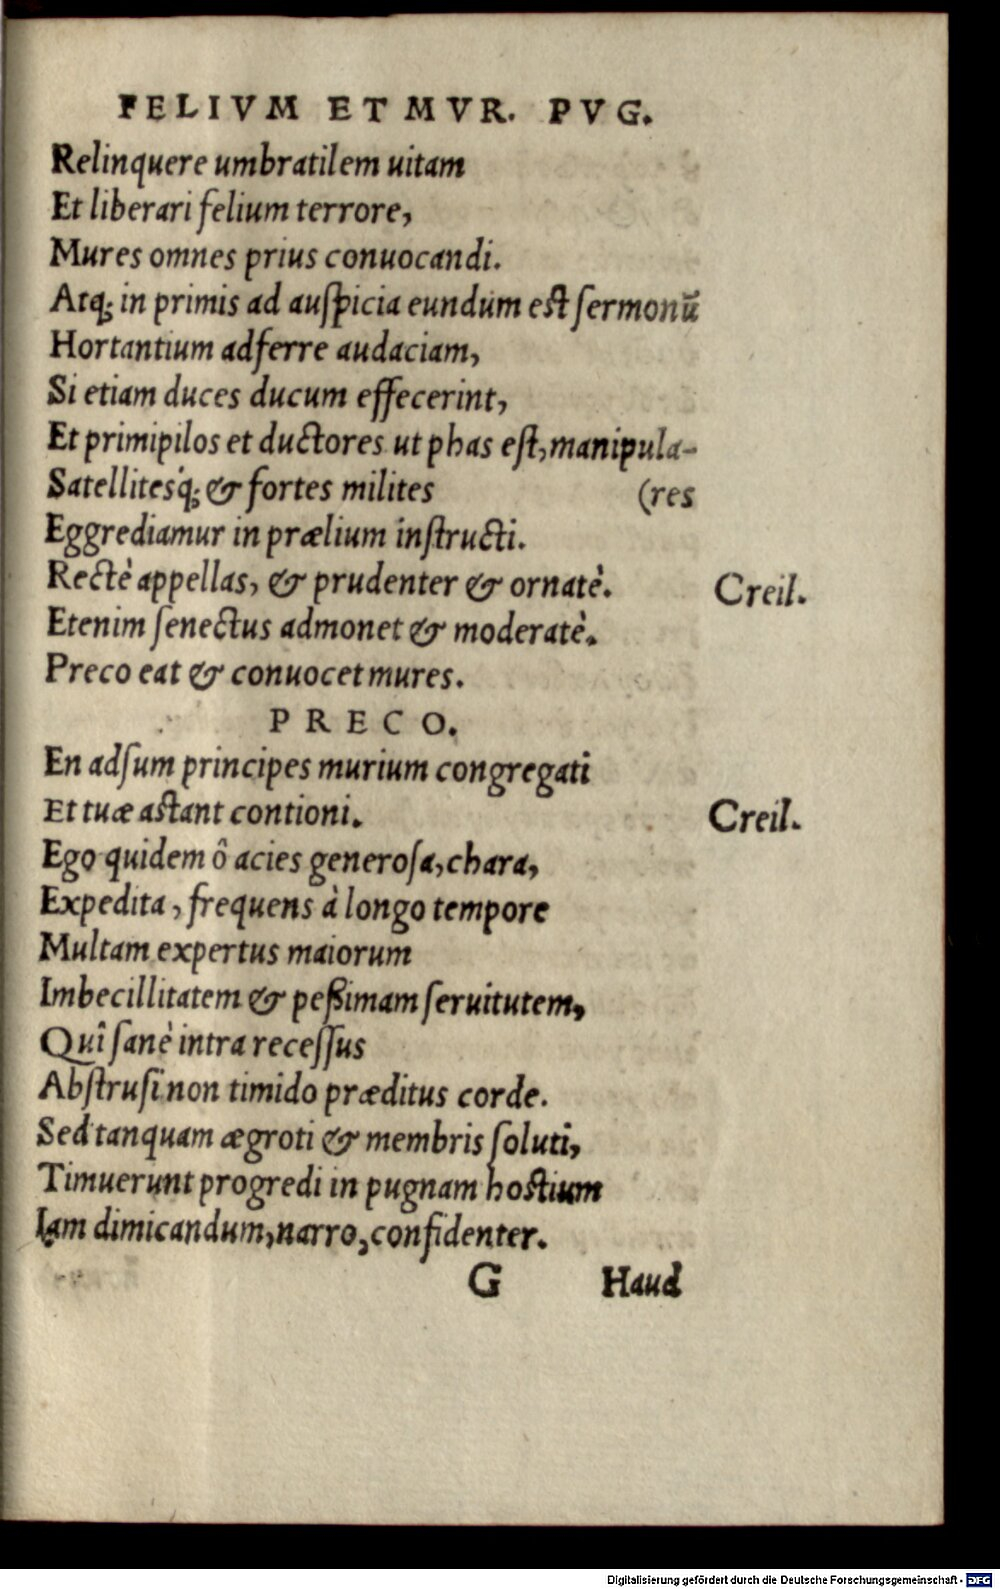 FELIVM ET MVR. PVG.
Relinquere umbratilem uitam
Et liberari felium terrore,
Mures omnes prius conuocandi.
Atq; in primis ad auſpicia eundum eſt ſermonū
Hortantium adferre audaciam,
Si etiam duces ducum effecerint,
Et primipilos et ductores ut phas eſt, manipula-
Satellitesq́; & fortes milites (res
Eggrediamur in prælium inſtructi.
Rectè appellas, & prudenter & ornatè. Creil.
Etenim ſenectus admonet & moderatè.
Preco eat & conuocet mures.
PRECO.
En adſum principes murium congregati
Et tuæ aſtant contioni. Creil.
Ego quidem ô acies generoſa, chara,
Expedita, frequens à longo tempore
Multam expertus maiorum
Imbecillitatem & peßimam ſeruitutem,
Quî ſanè intra receſſus
Abſtruſi non timido præditus corde.
Sed tanquam ægroti & membris ſoluti,
Timuerunt progredi in pugnam hoſtium
Iam dimicandum, narro, confidenter.
G Haud
Digitalisierung gefördert durch die Deutsche Forschungsgemeinschaft - DFG